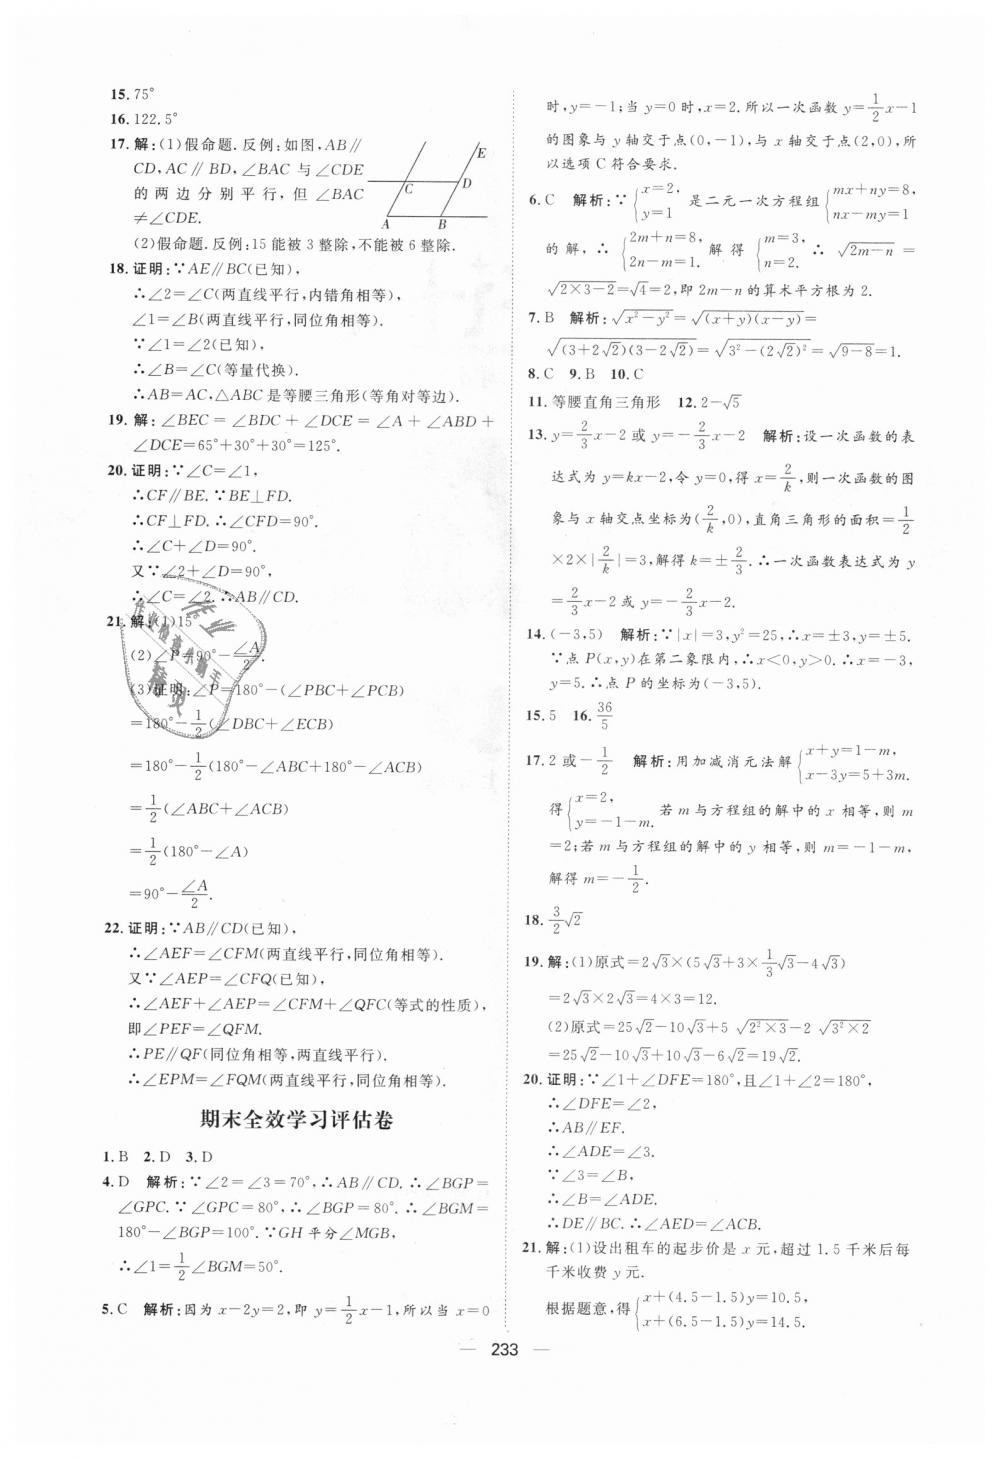 15. 75°
16. 122.5°
17. 解:(1)假命题.反例:如图,AB∥
CD,AC∥BD,∠BAC 与∠CDE
的两边分别平行,但∠BAC
≠∠CDE.
(2)假命题.反例:15能被3整除,不能被6整除.
E
C
D
A
B
18. 证明:∵AE∥BC(已知),
∴∠2=∠C(两直线平行,内错角相等),
∠1=∠B(两直线平行,同位角相等).
∵∠1=∠2(已知),
∴∠B=∠C(等量代换).
∴AB=AC,△ABC是等腰三角形(等角对等边).
19. 解:∠BEC=∠BDC+∠DCE=∠A+∠ABD+
∠DCE=65°+30°+30°=125°.
20. 证明:∵∠C=∠1,
∴CF∥BE.∵BE⊥FD.
∴CF⊥FD.∴∠CFD=90°.
∴∠C+∠D=90°.
又∵∠2+∠D=90°,
∴∠C=∠2.∴AB∥CD.
21. 解:(1)15°
(2)∠P=90°-∠A/2.
(3)证明:∠P=180°-(∠PBC+∠PCB)
=180°-1/2(∠DBC+∠ECB)
=180°-1/2(180°-∠ABC+180°-∠ACB)
=1/2(∠ABC+∠ACB)
=1/2(180°-∠A)
=90°-∠A/2.
22. 证明:∵AB∥CD(已知),
∴∠AEF=∠CFM(两直线平行,同位角相等).
又∵∠AEP=∠CFQ(已知),
∴∠AEF+∠AEP=∠CFM+∠QFC(等式的性质),
即∠PEF=∠QFM.
∴PE∥QF(同位角相等,两直线平行).
∴∠EPM=∠FQM(两直线平行,同位角相等).
期末全效学习评估卷
1. B 2. D 3. D
4. D 解析:∵∠2=∠3=70°,∴AB∥CD.∴∠BGP=
∠GPC.∵∠GPC=80°,∴∠BGP=80°.∴∠BGM=
180°-∠BGP=100°.∵GH平分∠MGB,
∴∠1=1/2∠BGM=50°.
5. C 解析:因为x-2y=2,即y=1/2x-1,所以当x=0
时,y=-1;当y=0时,x=2.所以一次函数y=1/2x-1
的图象与y轴交于点(0,-1),与x轴交于点(2,0),所
以选项C符合要求.
6. C 解析:∵{x=2, y=1 是二元一次方程组{mx+ny=8, nx-my=1
的解,∴{2m+n=8, 2n-m=1. 解得{m=3, n=2. ∴√(2m-n)=
√(2×3-2)=√4=2,即2m-n的算术平方根为2.
7. B 解析:√(x²-y²)=√((x+y)(x-y))=
√((3+2√2)(3-2√2))=√(3²-(2√2)²)=√(9-8)=1.
8. C 9. B 10. C
11. 等腰直角三角形 12. 2-√5
13. y=2/3x-2或y=-2/3x-2 解析:设一次函数的表
达式为y=kx-2,令y=0,得x=2/k,则一次函数的图
象与x轴交点坐标为(2/k,0),直角三角形的面积=1/2
×2×|2/k|=3,解得k=±2/3.∴一次函数表达式为y
=2/3x-2或y=-2/3x-2.
14. (-3,5) 解析:∵|x|=3,y²=25,∴x=±3,y=±5.
∵点P(x,y)在第二象限内,∴x<0,y>0.∴x=-3,
y=5.∴点P的坐标为(-3,5).
15. 5 16. 36/5
17. 2或-1/2 解析:用加减消元法解{x+y=1-m, x-3y=5+3m.
得{x=2, y=-1-m. 若m与方程组的解中的x相等,则m
=2;若m与方程组的解中的y相等,则m=-1-m,
解得m=-1/2.
18. 3/2√2
19. 解:(1)原式=2√3×(5√3+3×1/3√3-4√3)
=2√3×2√3=4×3=12.
(2)原式=25√2-10√3+5√(2²×3)-2√(3²×2)
=25√2-10√3+10√3-6√2=19√2.
20. 证明:∵∠1+∠DFE=180°,且∠1+∠2=180°,
∴∠DFE=∠2,
∴AB∥EF.
∴∠ADE=∠3.
∵∠3=∠B,
∴∠B=∠ADE.
∴DE∥BC.∴∠AED=∠ACB.
21. 解:(1)设出租车的起步价是x元,超过1.5千米后每
千米收费y元.
根据题意,得{x+(4.5-1.5)y=10.5, x+(6.5-1.5)y=14.5.
作业
作业检查小助手
精灵
— 233 —